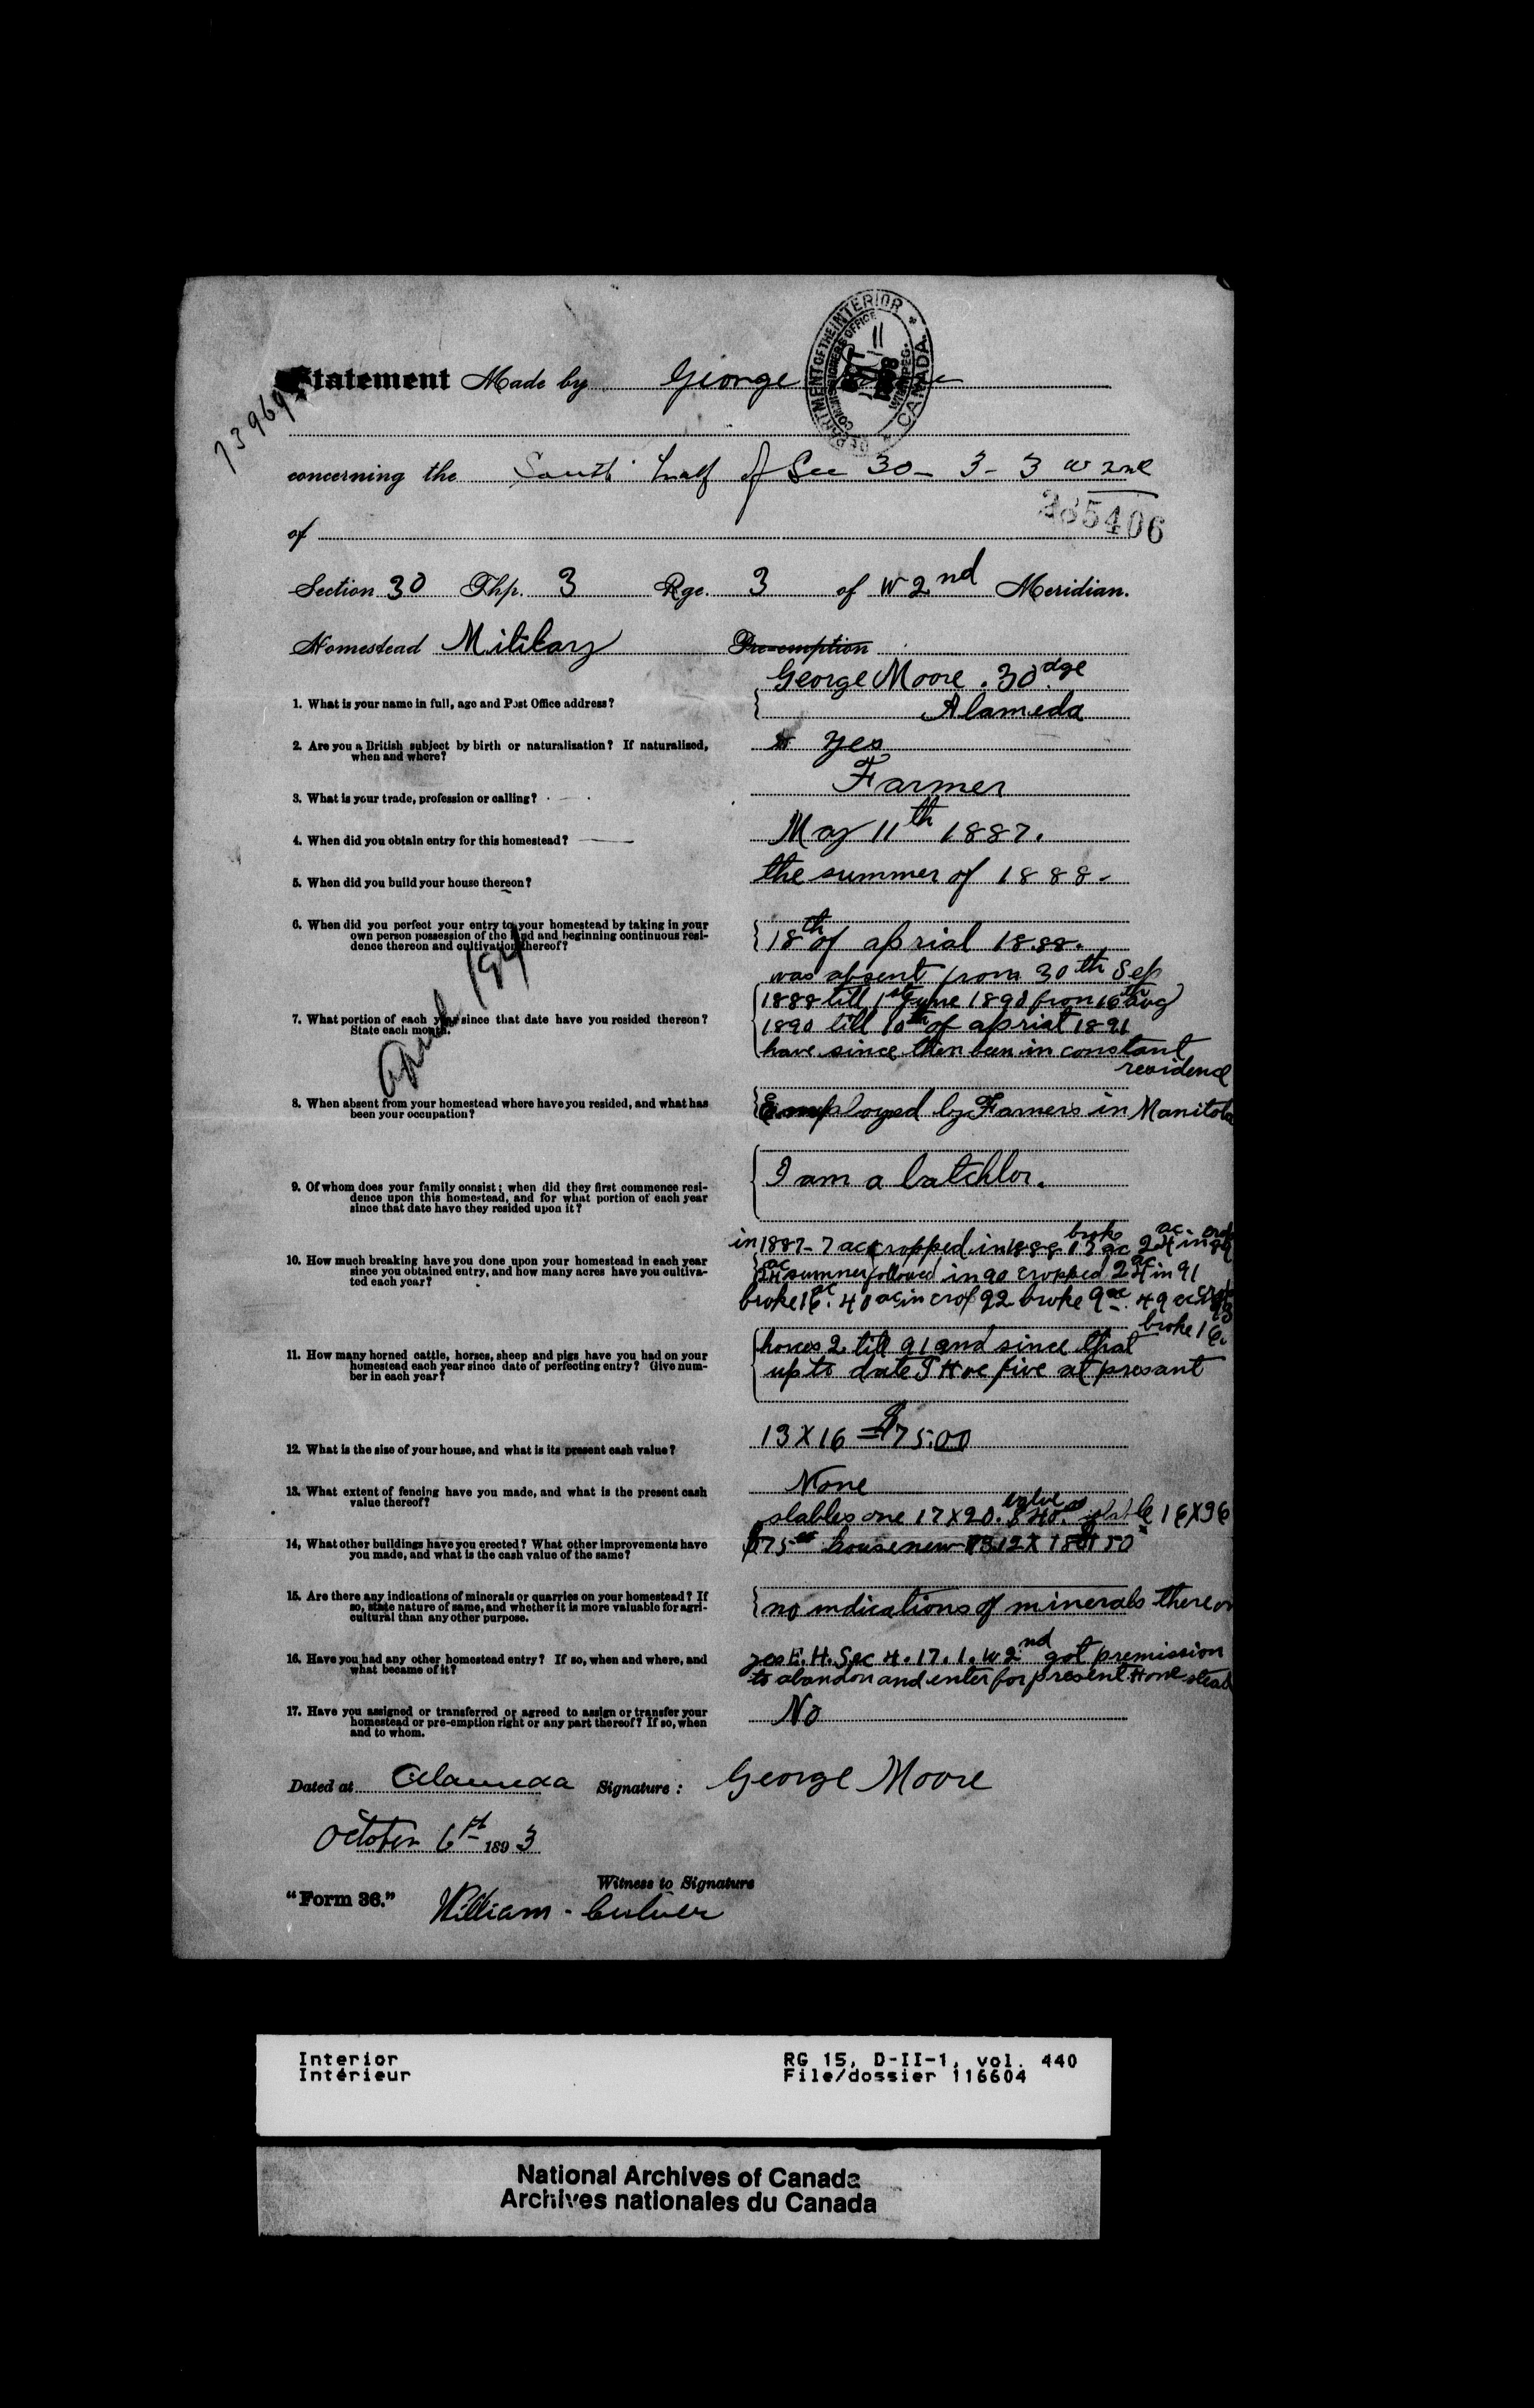 Statement Made by George Moore
DEPARTMENT OF THE INTERIOR
COMMISSIONERS OFFICE
OCT 11
WINNIPEG.
CANADA
73969
concerning the South half of Sec 30 - 3 - 3 w 2nd
235406
of
Section 30 Thp. 3 Rge. 3 of W 2nd Meridian.
Homestead Military Pre-emption
George Moore. 30 dge
1. What is your name in full, age and Post Office address?
Alameda
2. Are you a British subject by birth or naturalization? If naturalized, yes
when and where?
3. What is your trade, profession or calling? Farmer
4. When did you obtain entry for this homestead? May 11th 1887.
5. When did you build your house thereon? the summer of 1888-
6. When did you perfect your entry to your homestead by taking in your
own person possession of the land and beginning continuous resi-
dence thereon and cultivation thereof?
18th of aprial 1888.
was absent from 30th Sep
1888 till 1st June 1890 from 16th aug
7. What portion of each year since that date have you resided thereon?
State each month.
1890 till 10th of aprial 1891
have since then been in constant
residence
April
8. When absent from your homestead where have you resided, and what has
been your occupation?
Employed by Farmers in Manitoba
I am a batchlor.
9. Of whom does your family consist; when did they first commence resi-
dence upon this homestead, and for what portion of each year
since that date have they resided upon it?
in 1887 - 7 ac cropped in 1888 broke 13 ac 24 ac in crop 89
10. How much breaking have you done upon your homestead in each year
since you obtained entry, and how many acres have you cultiva-
ted each year?
24 ac sumnerfollowed in 90 cropped 24 ac in 91
broke 16 ac. 40 ac in crop 92 broke 9 ac. 49 ac crop 93
broke 16.
11. How many horned cattle, horses, sheep and pigs have you had on your
homestead each year since date of perfecting entry? Give num-
ber in each year?
horses 2 till 91 and since that
up to date five at presant
12. What is the size of your house, and what is its present cash value? 13 X 16 = $75.00
13. What extent of fencing have you made, and what is the present cash
value thereof?
None
stables one 17 X 20. value $40. stable 16 X 36
14. What other buildings have you erected? What other improvements have
you made, and what is the cash value of the same?
$75 house new 12 X 18 $150
15. Are there any indications of minerals or quarries on your homestead? If
so, state nature of same, and whether it is more valuable for agri-
cultural than any other purpose.
no indications of minerals thereon
16. Have you had any other homestead entry? If so, when and where, and
what became of it?
yes E. H. Sec 4. 17. 1. W 2nd got premission
to abandon and enter for present Homestead
17. Have you assigned or transferred or agreed to assign or transfer your
homestead or pre-emption right or any part thereof? If so, when
and to whom.
No
Dated at Alameda Signature: George Moore
October 6th 1893
Witness to Signature
"Form 36." William Culver
Interior
Intérieur
RG 15, D-II-1, vol. 440
File/dossier 116604
National Archives of Canada
Archives nationales du Canada